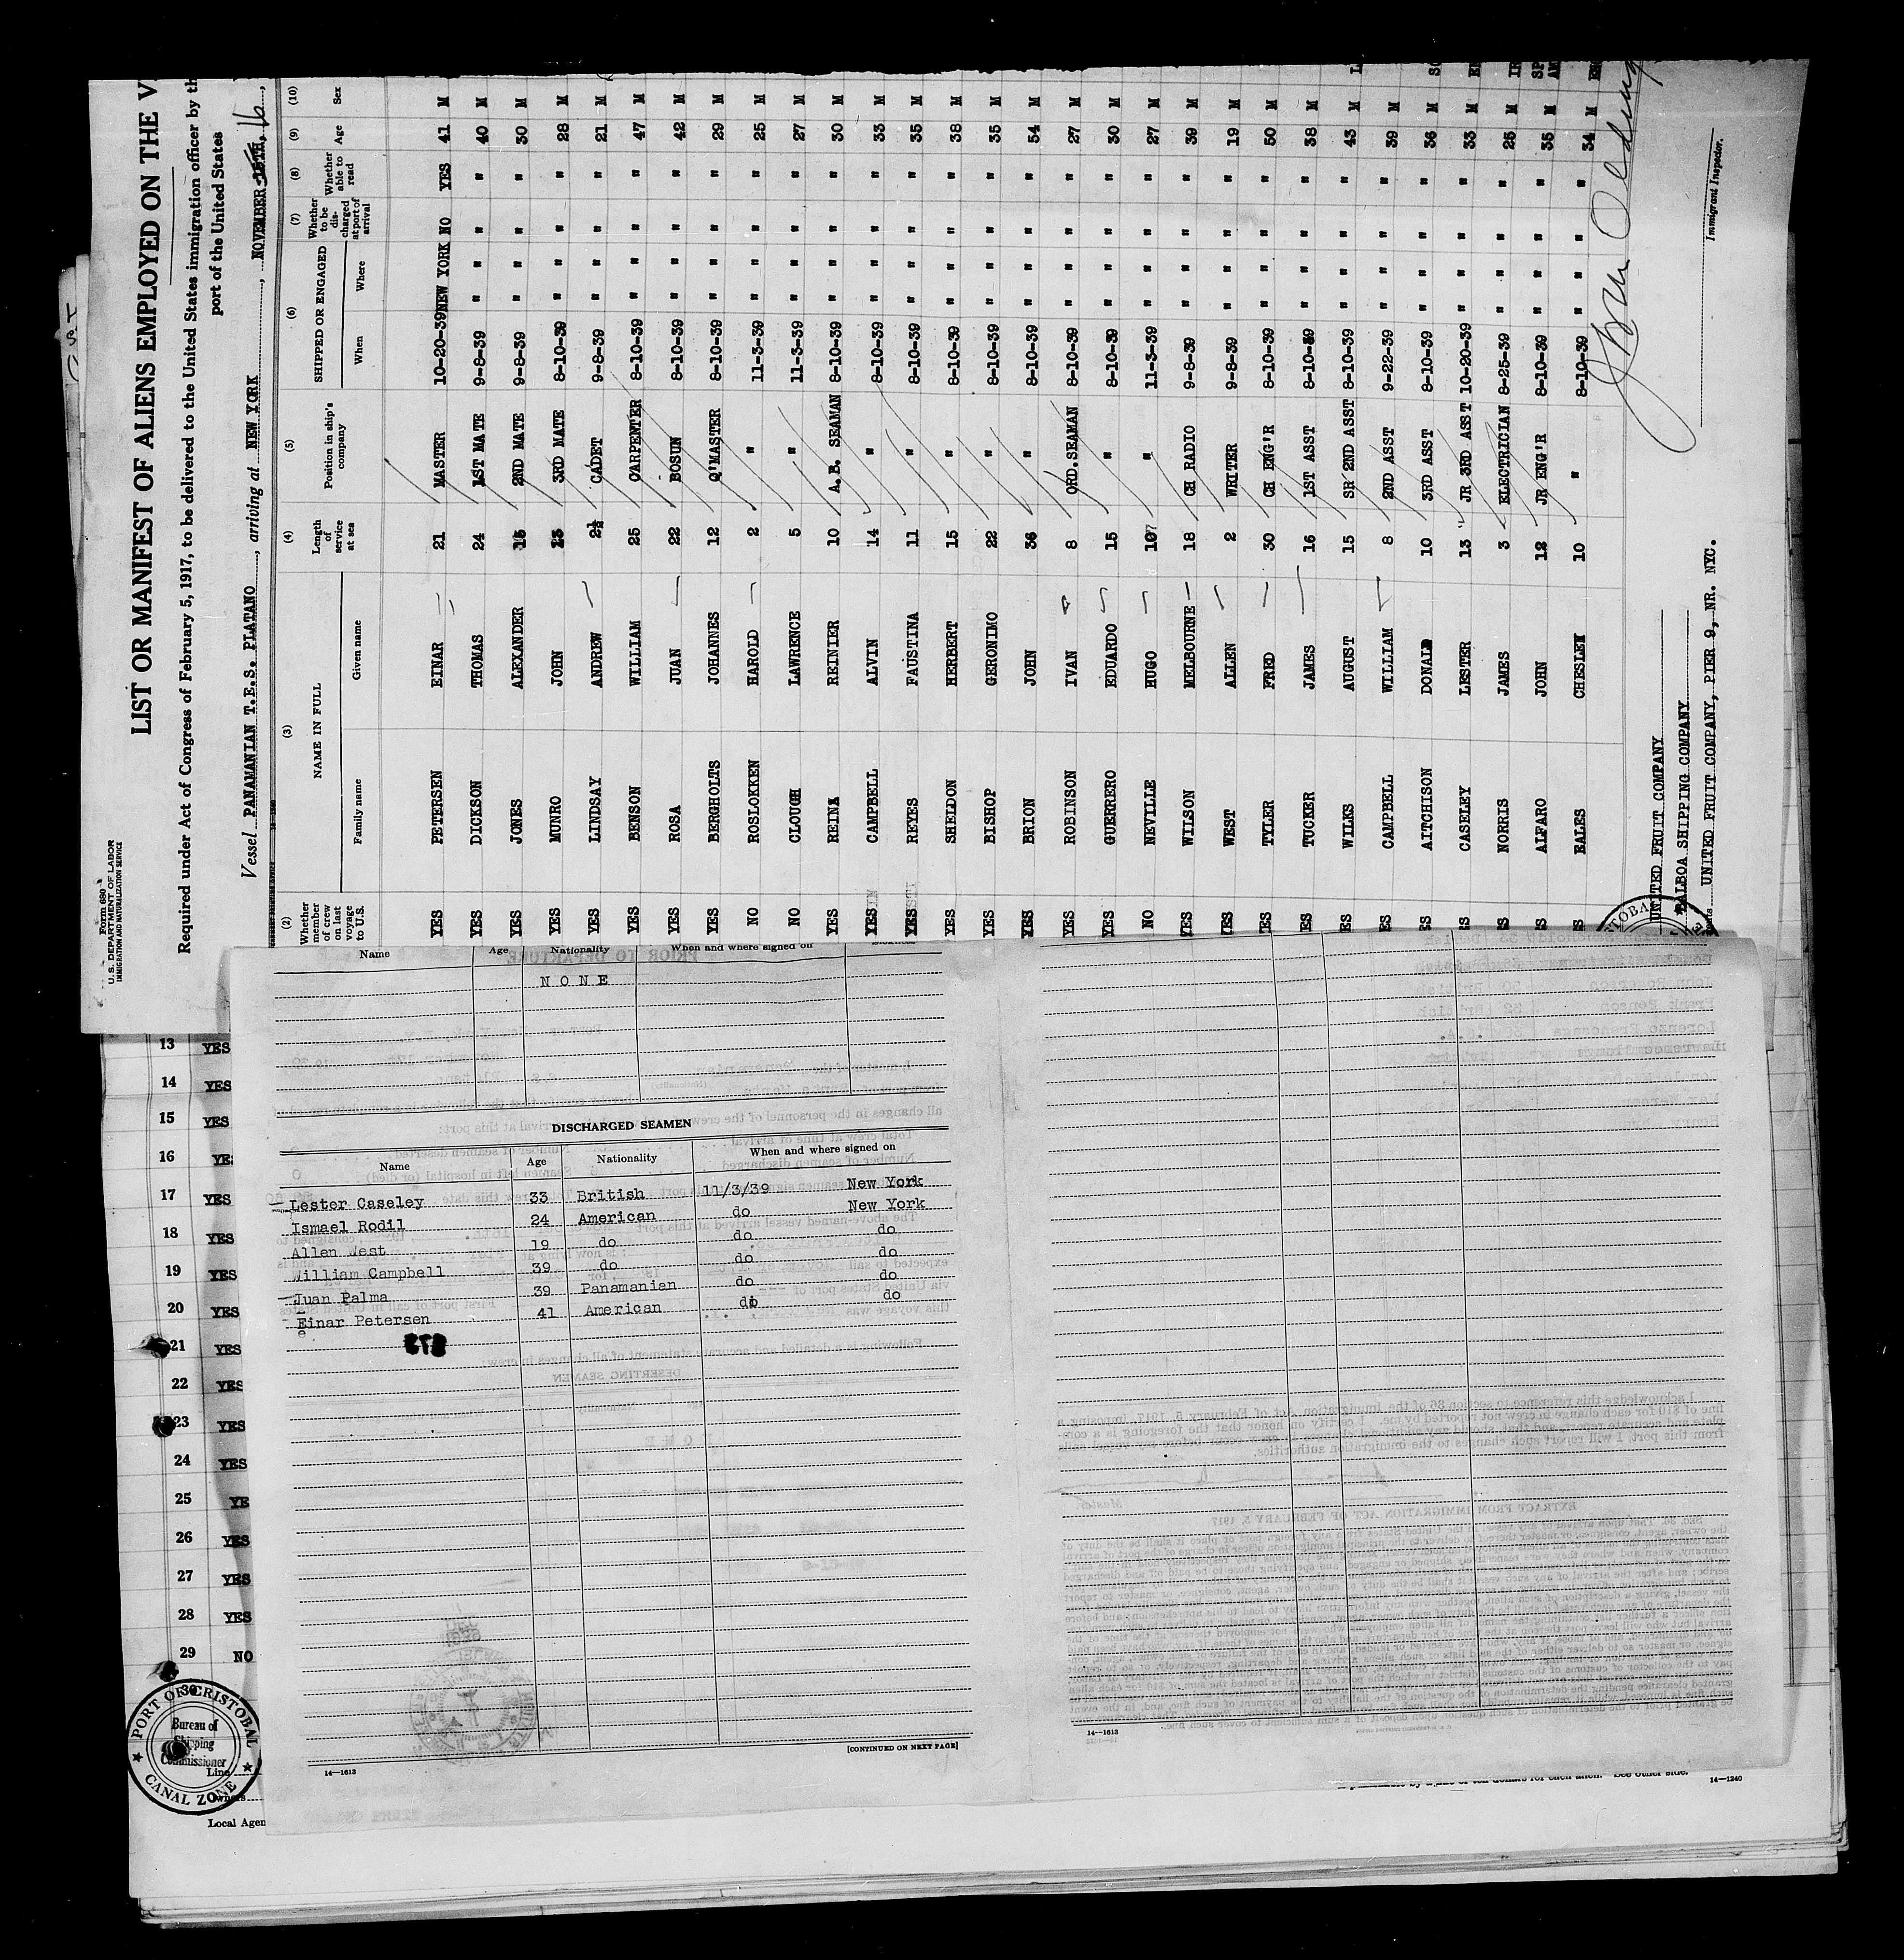 Form 680
U. S. DEPARTMENT OF LABOR
IMMIGRATION AND NATURALIZATION SERVICE
LIST OR MANIFEST OF ALIENS EMPLOYED ON THE V
Required under Act of Congress of February 5, 1917, to be delivered to the United States immigration officer by th
port of the United States
Vessel PANAMANIAN T.E.S. PLATANO, arriving at NEW YORK, NOVEMBER 15TH, 16,
(2) (3) (4) (5) (6) (7) (8) (9) (10)
Whether member of crew on last voyage to U.S. NAME IN FULL Family name Given name Length of service at sea Position in ship's company SHIPPED OR ENGAGED When Where Whether to be discharged at port of arrival Whether able to read Age Sex
YES PETERSEN EINAR 21 MASTER 10-20-39 NEW YORK NO YES 41 M
YES DICKSON THOMAS 24 1ST MATE 9-8-39 " " " " 40 M
YES JONES ALEXANDER 15 2ND MATE 9-8-39 " " " " 30 M
YES MUNRO JOHN 13 3RD MATE 8-10-39 " " " " 28 M
YES LINDSAY ANDREW 2½ CADET 9-8-39 " " " " 21 M
YES BENSON WILLIAM 25 CARPENTER 8-10-39 " " " " 47 M
YES ROSA JUAN 22 BOSUN 8-10-39 " " " " 42 M
YES BERGHOLTS JOHANNES 12 Q'MASTER 8-10-39 " " " " 29 M
NO ROSLOKKEN HAROLD 2 " 11-3-39 " " " " 25 M
NO CLOUGH LAWRENCE 5 " 11-3-39 " " " " 27 M
YES REINA REINIER 10 A.B. SEAMAN 8-10-39 " " " " 30 M
YES CAMPBELL ALVIN 14 " 8-10-39 " " " " 33 M
YES REYES FAUSTINA 11 " 8-10-39 " " " " 35 M
YES SHELDON HERBERT 15 " 8-10-39 " " " " 38 M
YES BISHOP GERONIMO 22 " 8-10-39 " " " " 35 M
YES BRION JOHN 36 " 8-10-39 " " " " 54 M
YES ROBINSON IVAN 8 ORD.SEAMAN 8-10-39 " " " " 27 M
YES GUERRERO EDUARDO 15 " 8-10-39 " " " " 30 M
NO NEVILLE HUGO 10 " 11-3-39 " " " " 27 M
YES WILSON MELBOURNE 18 CH RADIO 9-8-39 " " " " 39 M
YES WEST ALLEN 2 WRITER 9-8-39 " " " " 19 M
YES TYLER FRED 30 CH ENG'R 8-10-39 " " " " 50 M
YES TUCKER JAMES 16 1ST ASST 8-10-39 " " " " 38 M
ES WILKS AUGUST 15 SR 2ND ASST 8-10-39 " " " " 43 M
ES CAMPBELL WILLIAM 8 2ND ASST 9-22-39 " " " " 39 M
ES AITCHISON DONALD 10 3RD ASST 8-10-39 " " " " 36 M
ES CASELEY LESTER 13 JR 3RD ASST 10-20-39 " " " " 33 M
S NORRIS JAMES 3 ELECTRICIAN 8-25-39 " " " " 25 M
S ALFARO JOHN 12 JR ENG'R 8-10-39 " " " " 35 M
S EALES CHESLEY 10 " 8-10-39 " " " " 34 M
UNITED FRUIT COMPANY
BALBOA SHIPPING COMPANY
UNITED FRUIT COMPANY, PIER 9, NR. NYC.
Immigrant Inspector.
Name Age Nationality When and where signed on
NONE
DISCHARGED SEAMEN
Name Age Nationality When and where signed on
Lester Caseley 33 British 11/3/39 New York
Ismael Rodil 24 American do New York
Allen West 19 do do do
William Campbell 39 do do do
Juan Palma 39 Panamanian do do
Einar Petersen 41 American do do
[CONTINUED ON NEXT PAGE]
14—1613
14—1613
13 YES
14 YES
15 YES
16 YES
17 YES
18 YES
19 YES
20 YES
21 YES
22 YES
23 YES
24 YES
25 YE
26 YES
27 YES
28 YES
29 NO
30
PORT OF CRISTOBAL
Bureau of
Shipping
Commissioner
CANAL ZONE
Line
Owners
Local Agen
See other side.
14—1240